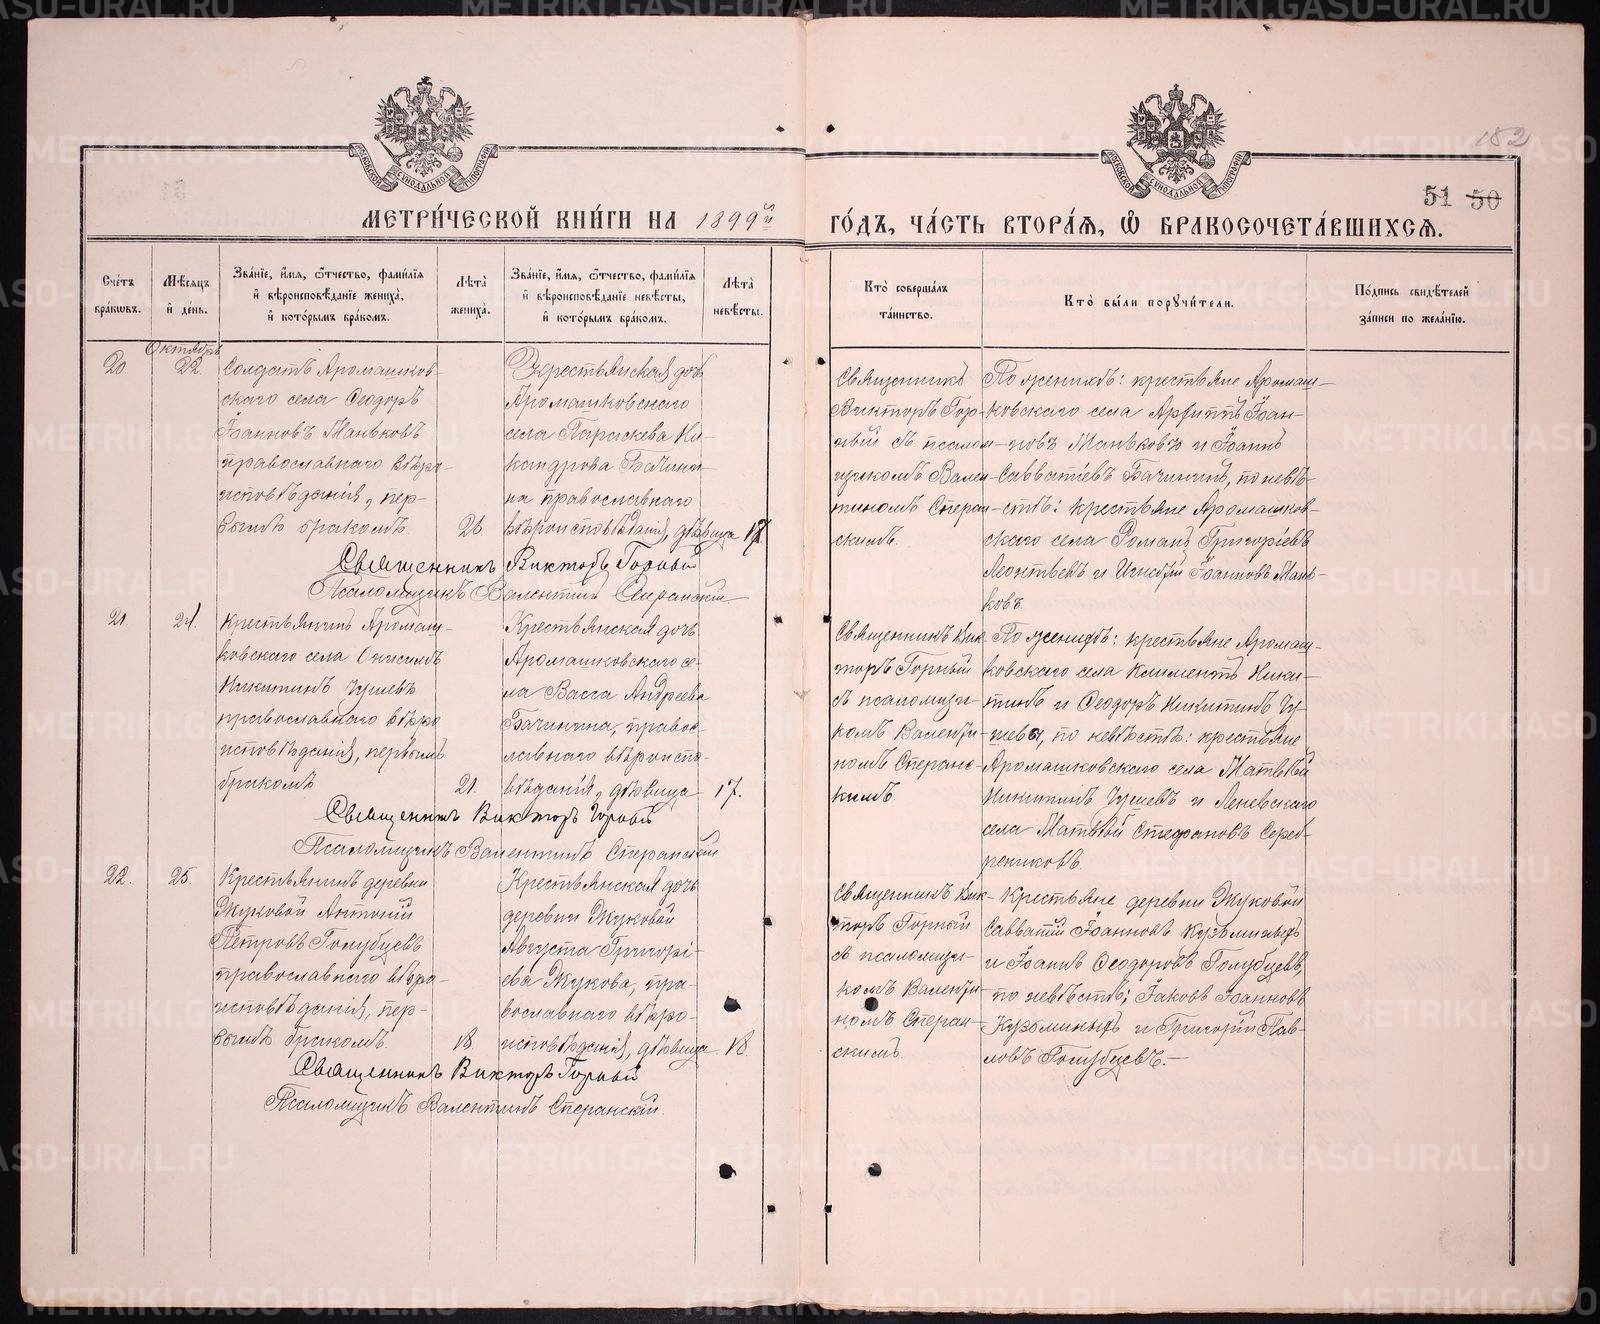 152
51 50
МЕТРИ́ЧЕСКОЙ КНИ́ГИ НА 1899й ГО́ДЪ, ЧА́СТЬ ВТОРА́Я, Ѡ БРАКОСОЧЕТА́ВШИХСѦ.
МОСКОВСКОЙ СѴНОДАЛЬНОЙ ТИПОГРАФІИ
МОСКОВСКОЙ СѴНОДАЛЬНОЙ ТИПОГРАФІИ
Сче́тъ
бра́кѡвъ.
Мѣ́сяцъ
и҆ де́нь.
Зва́нїе, и҆́мя, ѻ҆́тчество, фами́лїя
и҆ вѣроисповѣ́данїе жениха̀,
и҆ кото́рымъ бра́комъ.
Лѣ́та
жениха̀.
Зва́нїе, и҆́мя, ѻ҆́тчество, фами́лїя
и҆ вѣроисповѣ́данїе невѣ́сты,
и҆ кото́рымъ бра́комъ.
Лѣ́та
невѣ́сты.
Кто̀ соверша́лъ
та́инство.
Кто̀ бы́ли порꙋчи́тели.
По́дпись свидѣ́телей
за́писи по жела́нїю.
Октябрь
20
22.
Солдатъ Аромашков-
скаго села Ѳеодоръ
Іоанновъ Маньковъ
православнаго вѣро-
исповѣданія, пер-
вымъ бракомъ.
26.
Крестьянская дочь
Аромашковскаго
села Параскева Ни-
кандрова Бачини-
на православнаго
вѣроисповѣданія, дѣвица
17.
Священникъ
Викторъ Гор-
ный съ псалом-
щикомъ Вален-
тиномъ Сперан-
скимъ.
По женихѣ: крестьяне Аромаш-
ковскаго села Архиппъ Іоан-
новъ Маньковъ и Іоаннъ
Савватіевъ Бачининъ, по невѣ-
стѣ: крестьяне Аромашков-
скаго села Романъ Григоріевъ
Леонтьевъ и Игнатій Іоанновъ Мань-
ковъ.
Священникъ Викторъ Горный
Псаломщикъ Валентинъ Сперанскій
21.
24.
Крестьянинъ Аромаш-
ковскаго села Онисимъ
Никитинъ Чушевъ
православнаго вѣро
исповѣданія, первымъ
бракомъ
21.
Крестьянская дочь
Аромашковскаго се-
ла Васса Андреева
Бачинина, правос-
лавнаго вѣроиспо-
вѣданія, дѣвица
17.
Священникъ Вик-
торъ Горный
съ псаломщи-
комъ Валенти-
номъ Сперанс-
кимъ
По женихѣ: крестьяне Аромаш-
ковскаго села Климентъ Ники-
тинъ и Ѳеодоръ Никитинъ Чу-
шевы, по невѣстѣ: крестьяне
Аромашковскаго села Матвѣй
Никитинъ Чушевъ и Леневскаго
села Матвѣй Стефановъ Сереб-
рениковъ.
Священникъ Викторъ Горный
Псаломщикъ Валентинъ Сперанскій
22.
25.
Крестьянинъ деревни
Жуковой Антоній
Петровъ Голубцевъ
православнаго вѣро-
исповѣданія, пер-
вымъ бракомъ.
18.
Крестьянская дочь
деревни Жуковой
Августа Григорі-
ева Жукова, пра-
вославнаго вѣро-
исповѣданія, дѣвица.
18.
Священникъ Вик-
торъ Горный
съ псаломщи-
комъ Валенти-
номъ Сперан-
скимъ.
Крестьяне деревни Жуковой
Савватій Іоанновъ Кузьминыхъ
и Іоаннъ Ѳеодоровъ Голубцевъ,
по невѣстѣ: Іаковъ Іоанновъ
Кузьминыхъ и Григорій Пав-
ловъ Голубцевъ.—
Священникъ Викторъ Горный
Псаломщикъ Валентинъ Сперанскій.
METRIKI.GASO-URAL.RU